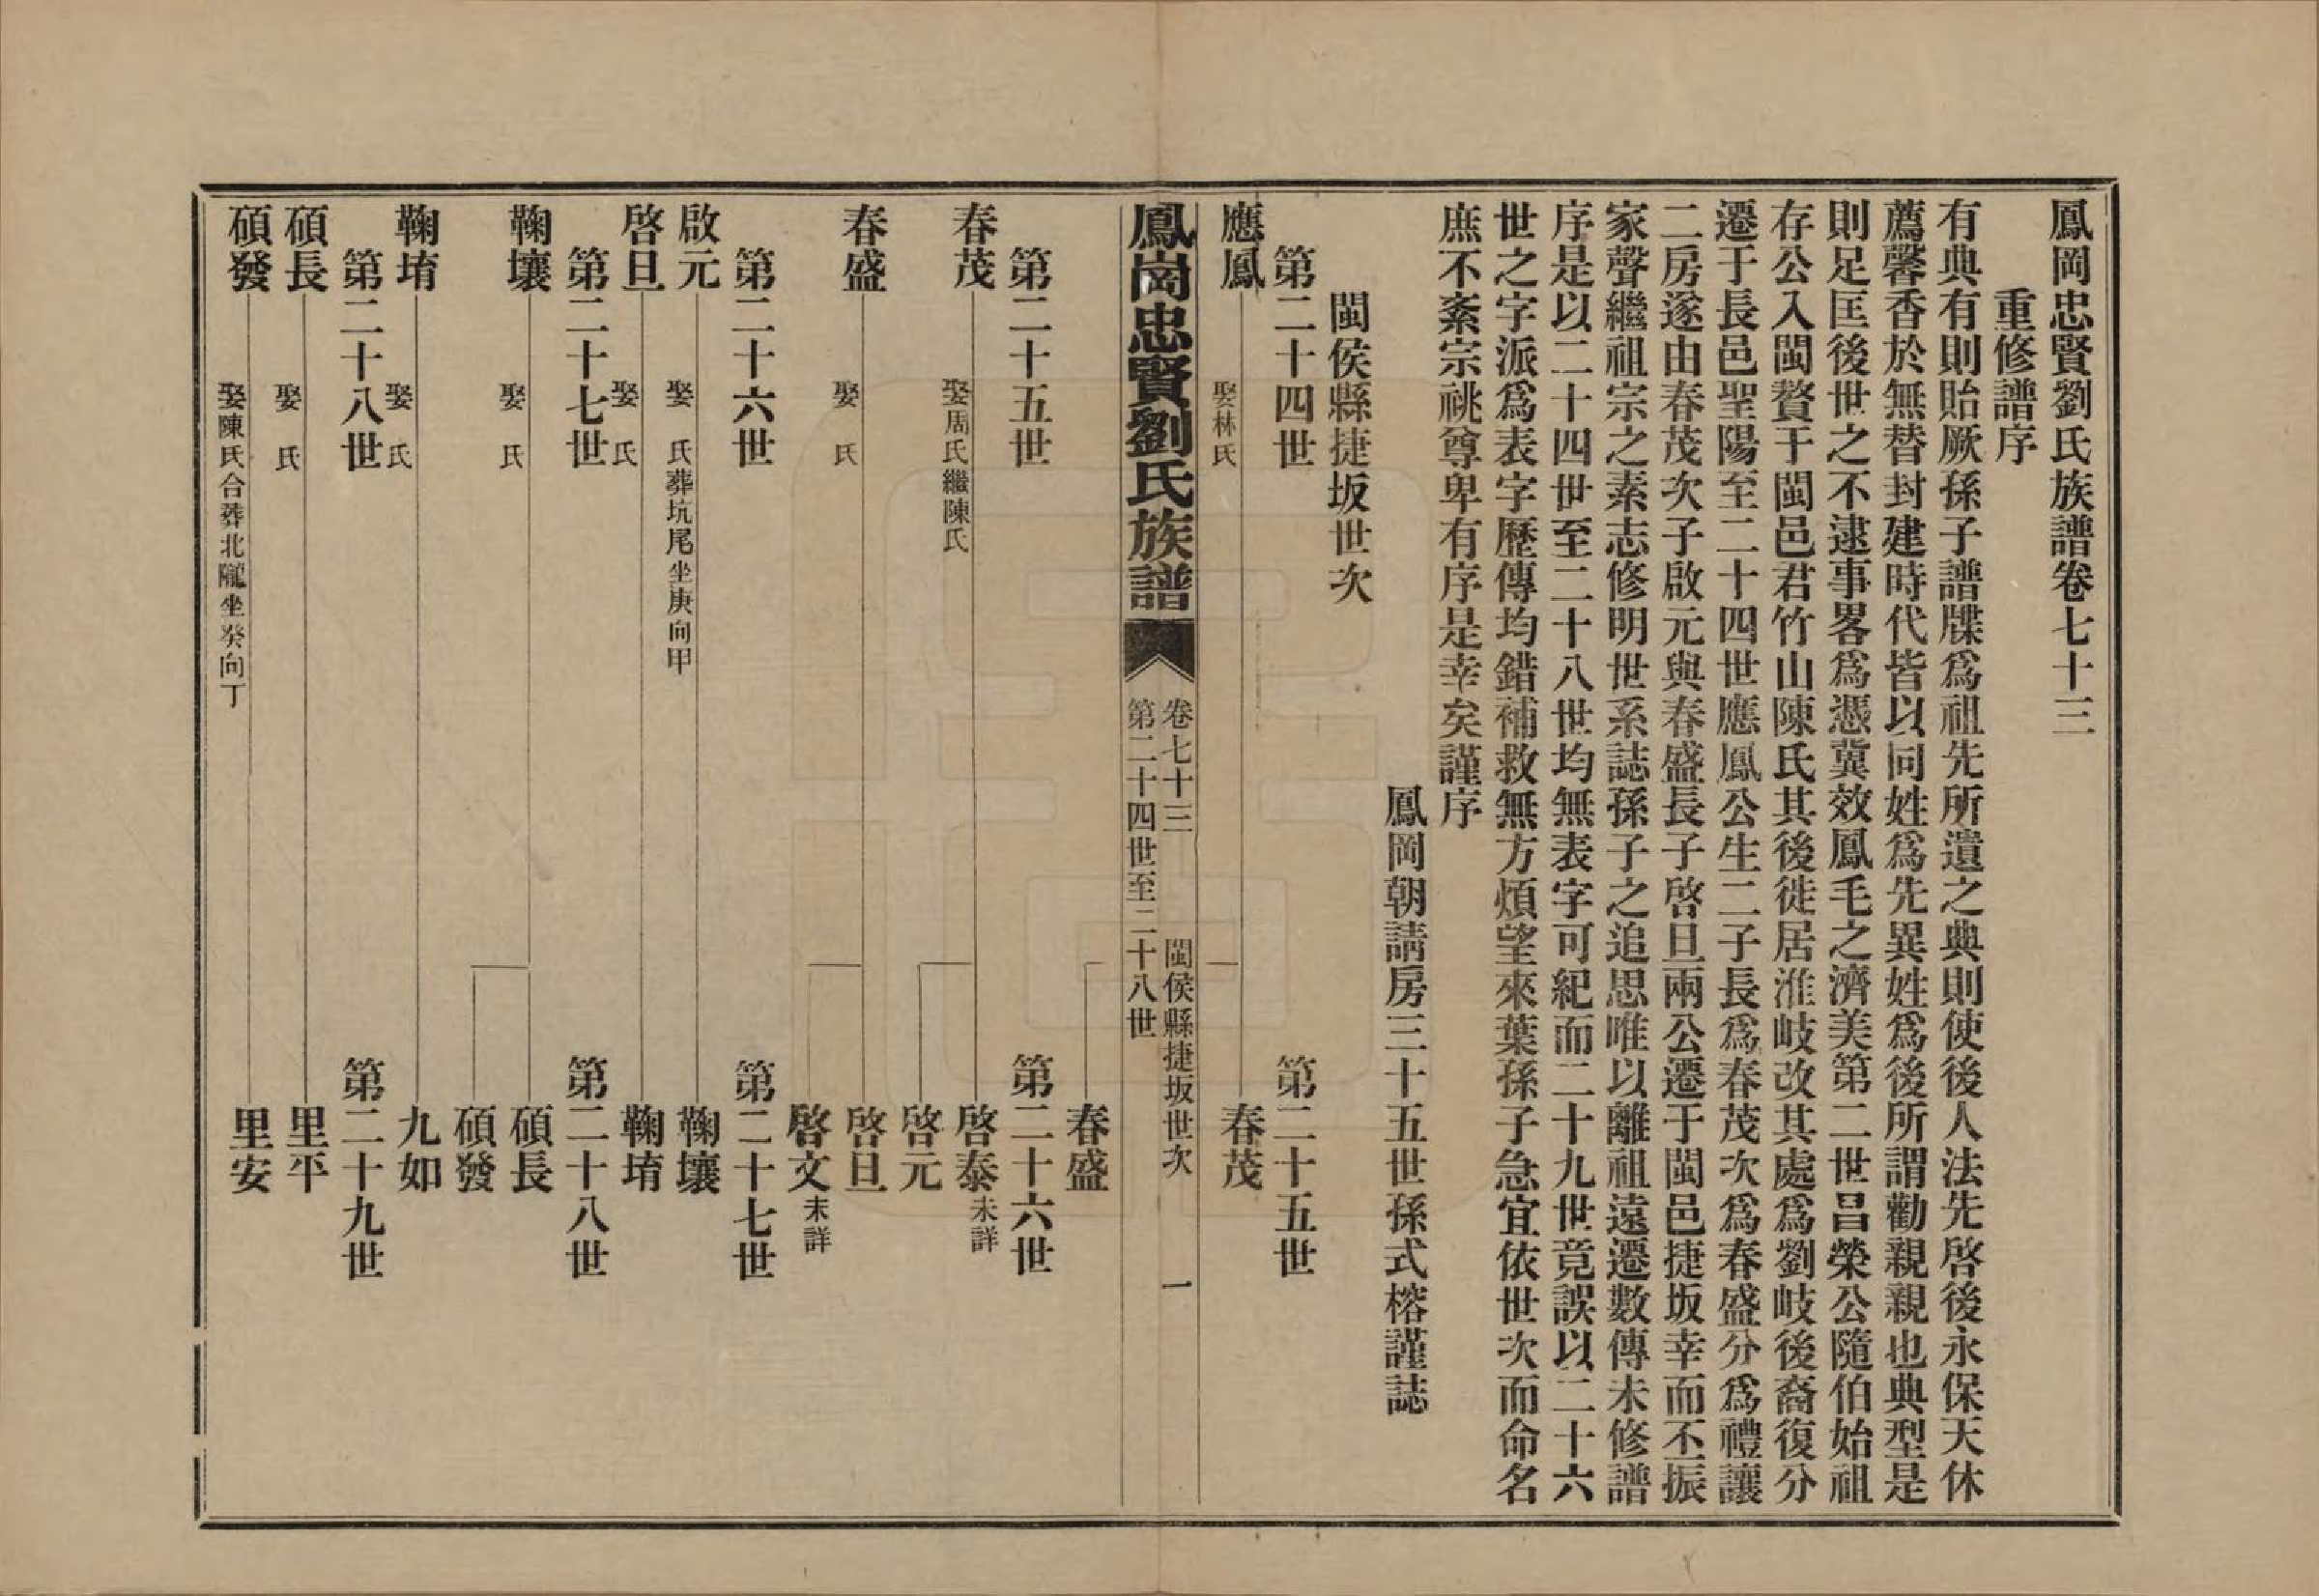 鳳岡忠賢劉氏族譜卷七十三
重修譜序
有典有則貽厥孫子譜牒爲祖先所遺之典則使後人法先啓後永保天休
薦馨香於無替封建時代皆以同姓爲先異姓爲後所謂勸親親也典型是
則足匡後世之不逮事畧爲憑冀效鳳毛之濟美第二世昌榮公隨伯始祖
存公入閩贅于閩邑君竹山陳氏其後徙居淮岐改其處爲劉岐後裔復分
遷于長邑聖陽至二十四世應鳳公生二子長爲春茂次爲春盛分爲禮讓
二房遂由春茂次子啟元與春盛長子啓旦兩公遷于閩邑捷坂幸而不振
家聲繼祖宗之素志修明世系誌孫子之追思唯以離祖遠遷數傳未修譜
序是以二十四世至二十八世均無表字可紀而二十九世竟誤以二十六
世之字派爲表字歷傳均錯補救無方煩望來葉孫子急宜依世次而命名
庶不紊宗祧尊卑有序是幸矣謹序
鳳岡朝請房三十五世孫式榕謹誌
閩侯縣捷坂世次
第二十四世 第二十五世
應鳳 娶林氏 春茂
鳳崗忠賢劉氏族譜 卷七十三 閩侯縣捷坂世次 一
第二十四世至二十八世
春盛
第二十五世 第二十六世
春茂 娶周氏繼陳氏 啓泰未詳
啓元
春盛 娶 氏 啓旦
啓文未詳
第二十六世 第二十七世
啟元 娶 氏葬坑尾坐庚向甲 鞠壤
啓旦 娶 氏 鞠堉
第二十七世 第二十八世
鞠壤 娶 氏 碩長
碩發
鞠堉 娶 氏 九如
第二十八世 第二十九世
碩長 娶 氏 里平
碩發 娶陳氏合葬北隴坐癸向丁 里安